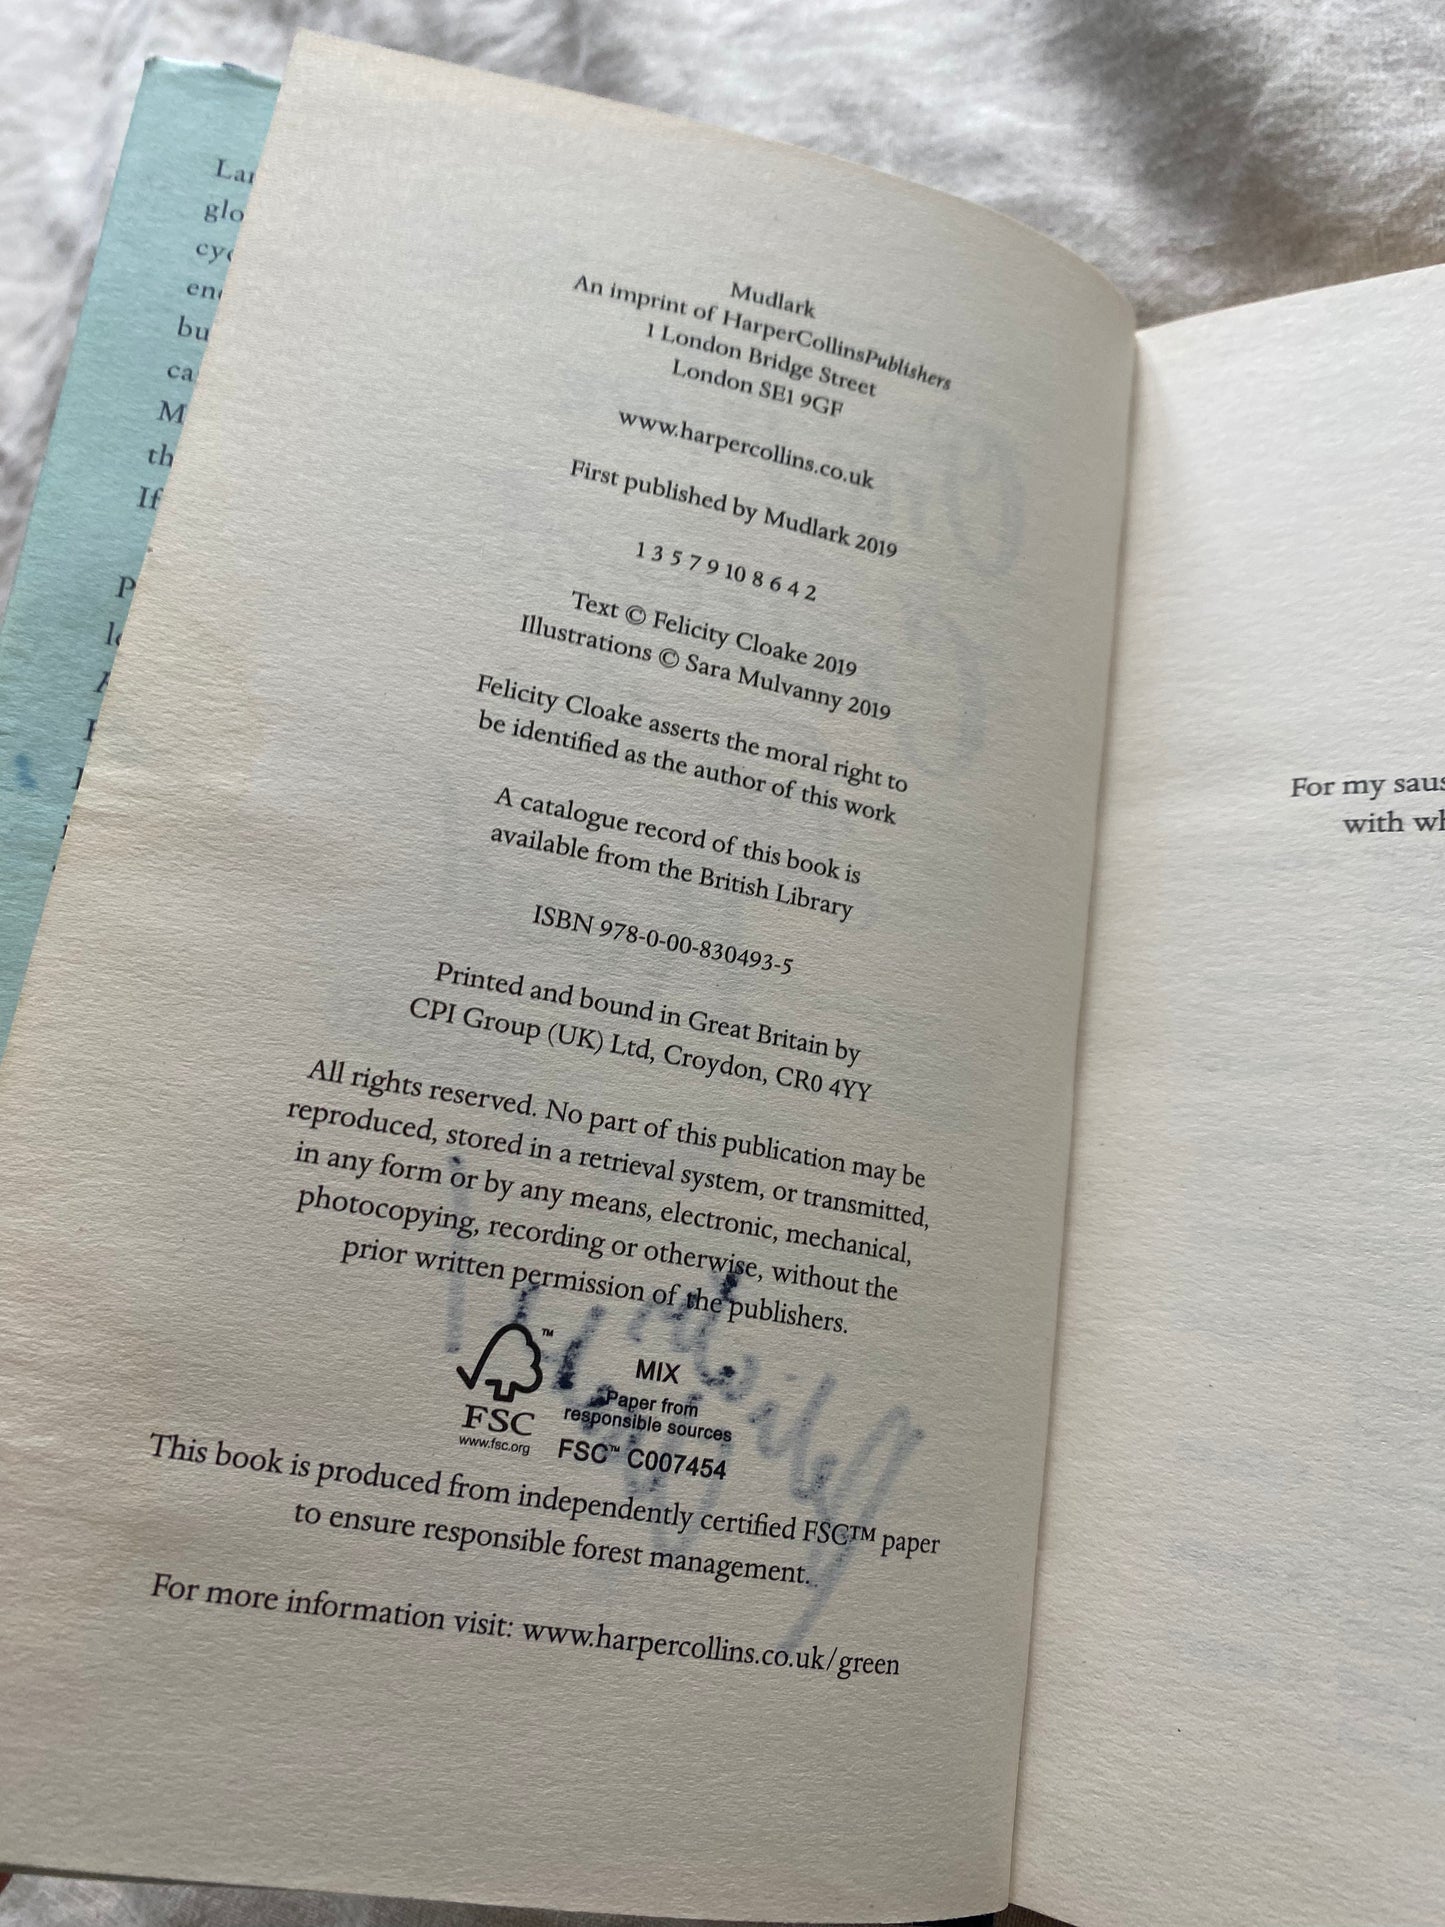 Lar
glo
cyc
enc
bu
ca
M
th
If
P
Mudlark
An imprint of HarperCollinsPublishers
1 London Bridge Street
London SE1 9GF
www.harpercollins.co.uk
First published by Mudlark 2019
1 3 5 7 9 10 8 6 4 2
Text © Felicity Cloake 2019
Illustrations © Sara Mulvanny 2019
Felicity Cloake asserts the moral right to
be identified as the author of this work
A catalogue record of this book is
available from the British Library
ISBN 978-0-00-830493-5
Printed and bound in Great Britain by
CPI Group (UK) Ltd, Croydon, CR0 4YY
All rights reserved. No part of this publication may be
reproduced, stored in a retrieval system, or transmitted,
in any form or by any means, electronic, mechanical,
photocopying, recording or otherwise, without the
prior written permission of the publishers.
FSC
www.fsc.org
MIX
Paper from
responsible sources
FSC™ C007454
This book is produced from independently certified FSC™ paper
to ensure responsible forest management.
For more information visit: www.harpercollins.co.uk/green
For my saus
with wh